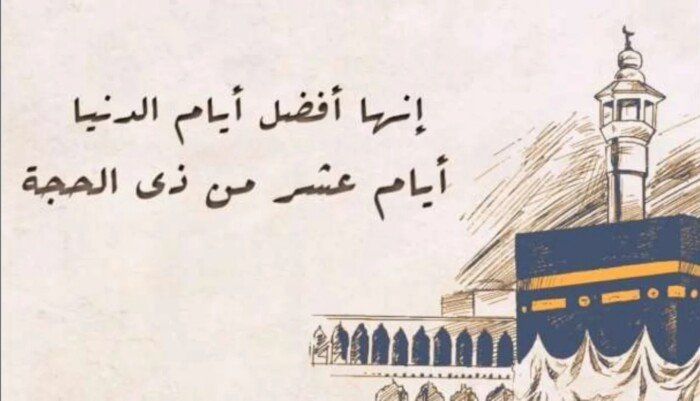 إنها أفضل أيام الدنيا
أيام عشر من ذى الحجة